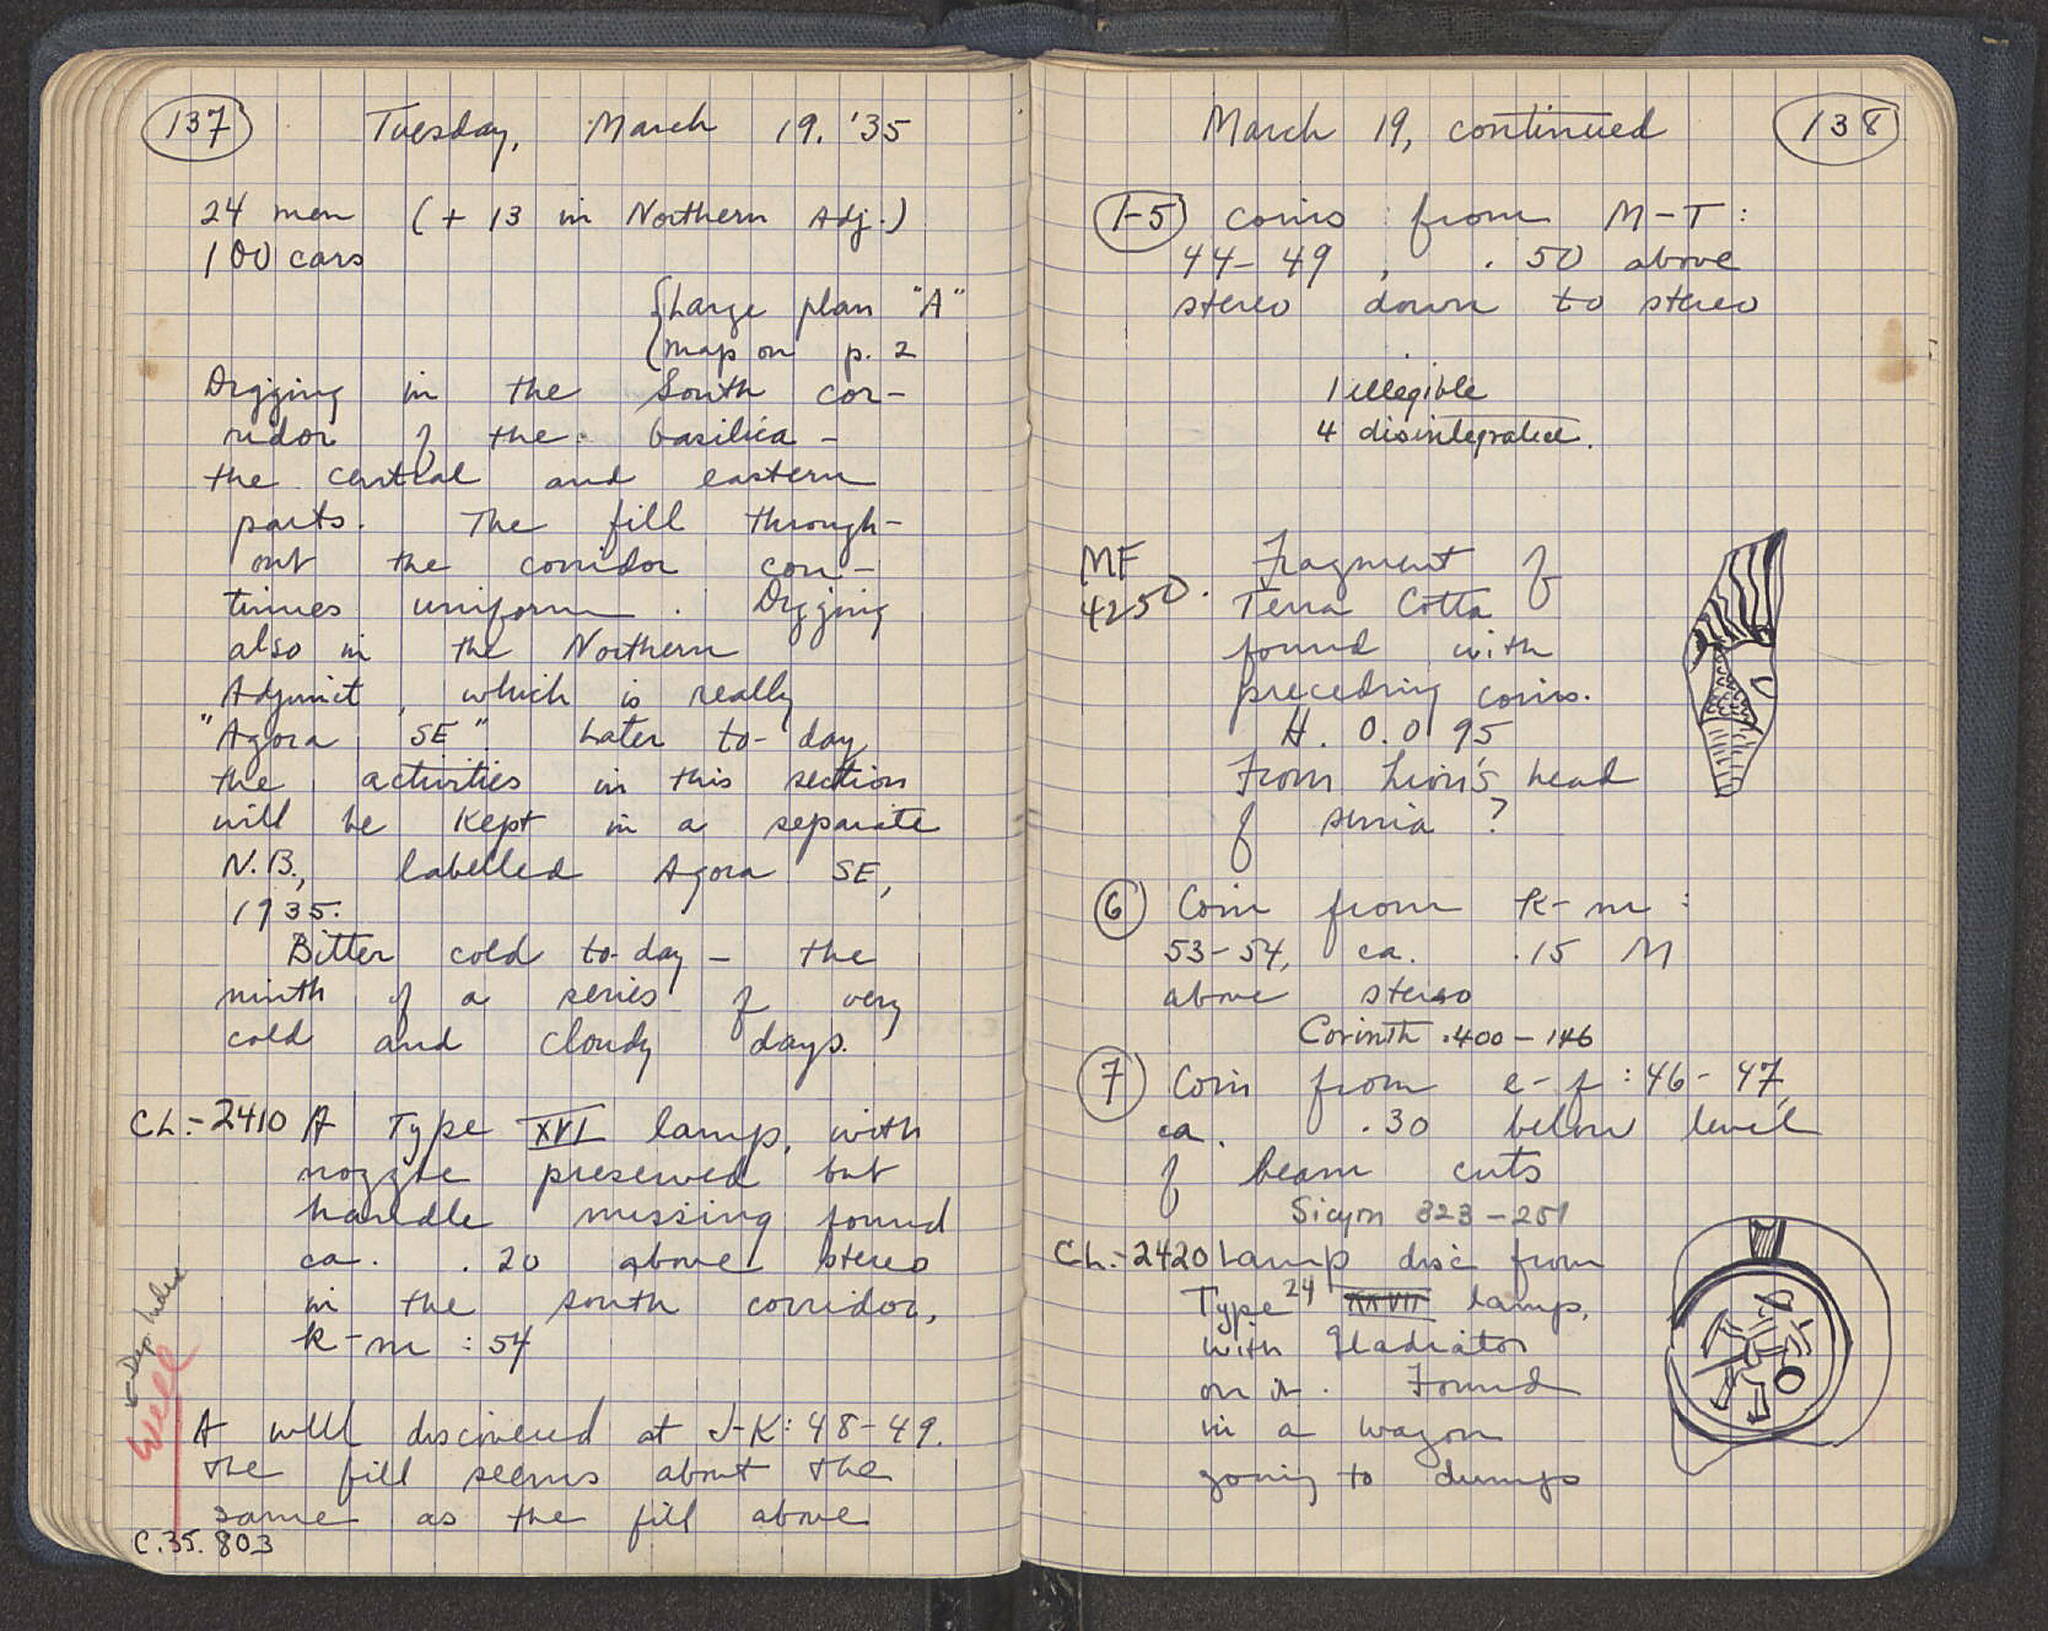 137
Tuesday, March 19. '35
24 men (+ 13 in Northern Adj.)
100 cars
{Large plan "A"
(map on p. 2
Digging in the South cor-
ridor of the basilica -
the central and eastern
parts. The fill through-
out the corridor con-
tinues uniform. Digging
also in the Northern
Adjunct, which is really
"Agora SE". Later to-day
the activities in this section
will be kept in a separate
N.B., labelled Agora SE,
1935.
Bitter cold to-day - the
ninth of a series of very
cold and cloudy days.
CL.-2410 A Type XVI lamp, with
nozzle preserved but
handle missing found
ca. .20 above stereo
in the south corridor,
k-m : 54
← Dep. Index
Well
A well discovered at J-K: 48-49.
The fill seems about the
same as the fill above
C.35.803
March 19, continued
138
1-5 coins from M-T:
44-49, .50 above
stereo down to stereo
1 illegible
4 disintegrated.
MF
4250. Fragment of
Terra Cotta
found with
preceding coins.
H. 0.095
From Lion's head
of simia ?
6 Coin from k-m :
53-54, ca. .15 M
above stereo
Corinth .400-146
7 Coin from e-f : 46-47,
ca. .30 below level
of beam cuts
Sicyon 323-251
CL.-2420 Lamp disc from
Type 24 XXVII lamp,
with Gladiator
on it. Found
in a wagon
going to dumps